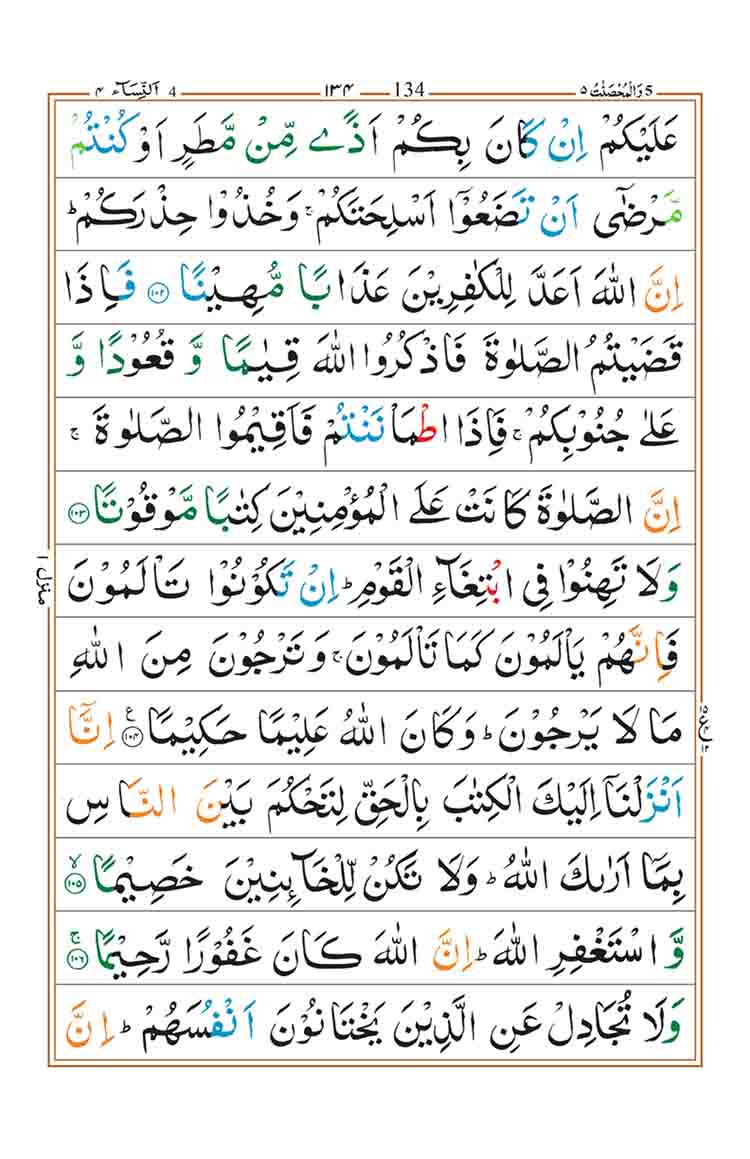 5 وَالْمُحْصَنٰتُ ٥ 134 ١٣٤ 4 اَلنِّسَآء ٤
عَلَيْكُمْ اِنْ كَانَ بِكُمْ اَذًى مِّنْ مَّطَرٍ اَوْ كُنْتُمْ
مَّرْضٰٓى اَنْ تَضَعُوْٓا اَسْلِحَتَكُمْ ۚ وَخُذُوْا حِذْرَكُمْ ؕ
اِنَّ اللّٰهَ اَعَدَّ لِلْكٰفِرِيْنَ عَذَابًا مُّهِيْنًا ﴿١٠٢﴾ فَاِذَا
قَضَيْتُمُ الصَّلٰوةَ فَاذْكُرُوا اللّٰهَ قِيٰمًا وَّ قُعُوْدًا وَّ
عَلٰى جُنُوْبِكُمْ ۚ فَاِذَا اطْمَاْنَنْتُمْ فَاَقِيْمُوا الصَّلٰوةَ ۚ
اِنَّ الصَّلٰوةَ كَانَتْ عَلَى الْمُؤْمِنِيْنَ كِتٰبًا مَّوْقُوْتًا ﴿١٠٣﴾
وَلَا تَهِنُوْا فِى ابْتِغَآءِ الْقَوْمِ ؕ اِنْ تَكُوْنُوْا تَاْلَمُوْنَ
فَاِنَّهُمْ يَاْلَمُوْنَ كَمَا تَاْلَمُوْنَ ۚ وَتَرْجُوْنَ مِنَ اللّٰهِ
مَا لَا يَرْجُوْنَ ؕ وَكَانَ اللّٰهُ عَلِيْمًا حَكِيْمًا ﴿١٠٤﴾ ع اِنَّآ
اَنْزَلْنَآ اِلَيْكَ الْكِتٰبَ بِالْحَقِّ لِتَحْكُمَ بَيْنَ النَّاسِ
بِمَآ اَرٰىكَ اللّٰهُ ؕ وَلَا تَكُنْ لِّلْخَآئِنِيْنَ خَصِيْمًا ﴿١٠٥﴾ ۙ
وَّ اسْتَغْفِرِ اللّٰهَ ؕ اِنَّ اللّٰهَ كَانَ غَفُوْرًا رَّحِيْمًا ﴿١٠٦﴾ ۚ
وَلَا تُجَادِلْ عَنِ الَّذِيْنَ يَخْتَانُوْنَ اَنْفُسَهُمْ ؕ اِنَّ
منزل ١